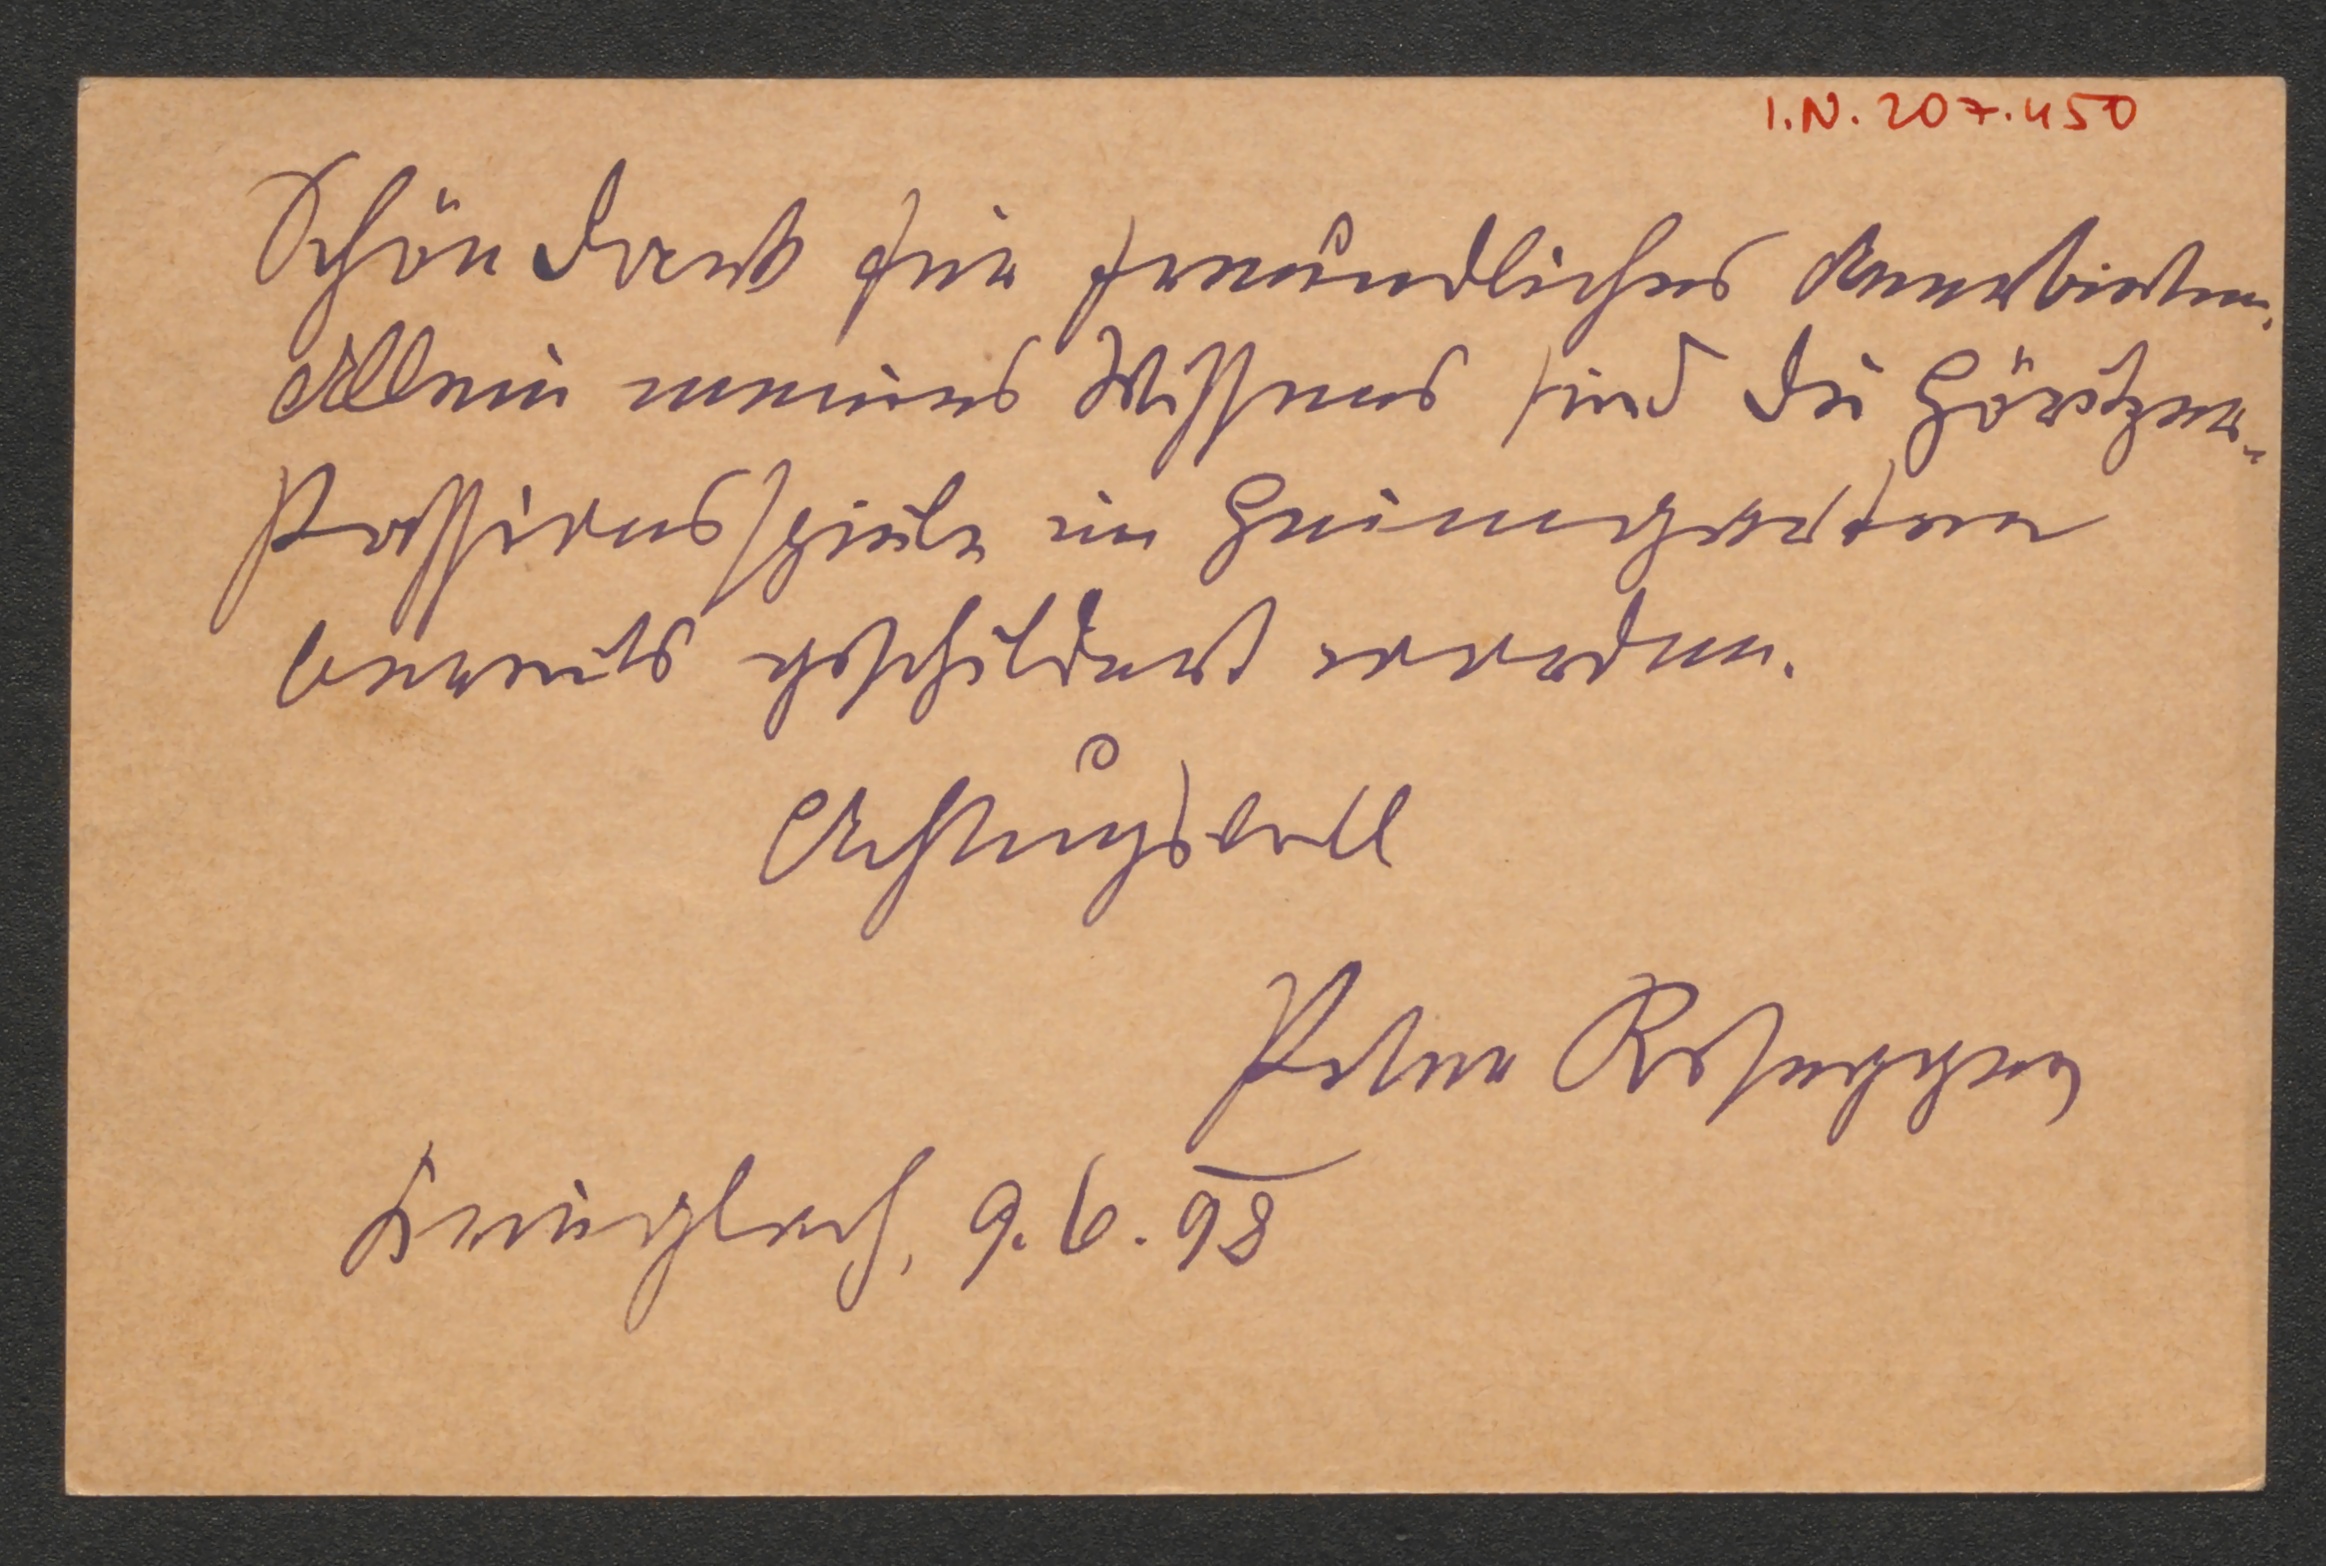 I.N. 207.450
Schön Dank für freundliches Anerbieten.
Allein meines Wissens sind die Höritzer-
Passionsspiele im Heimgarten
bereits geschildert worden.
Achtungsvoll
Peter Rosegger
Krieglach, 9.6.98